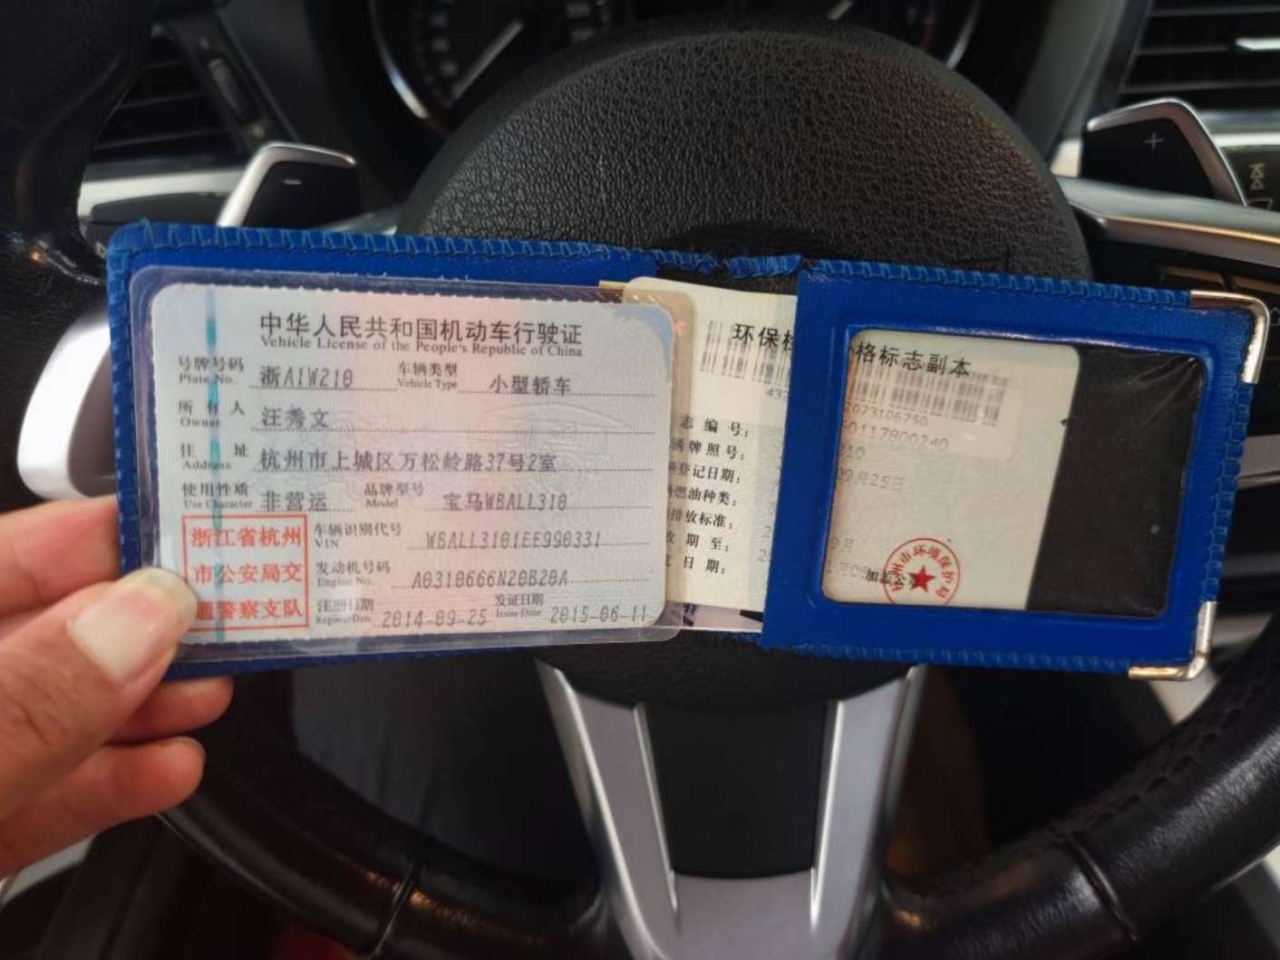 中华人民共和国机动车行驶证
Vehicle License of the People's Republic of China
号牌号码 浙A1W210 车辆类型 小型轿车
Plate No. Vehicle Type
所有人 汪秀文
Owner
住址 杭州市上城区万松岭路37号2室
Address
使用性质 非营运 品牌型号 宝马WBALL310
Use Character Model
浙江省杭州
市公安局交
通警察支队
车辆识别代号 WBALL3101EE990331
VIN
发动机号码 A0310666N20B20A
Engine No.
注册日期 2014-09-25 发证日期 2015-06-11
Register Date Issue Date
环保
格标志副本
志编号:
牌照号:
登记日期:
燃油种类:
排放标准:
期至:
日期:
2073106750
50117800240
210
09月25日
市环境保护局
+
-